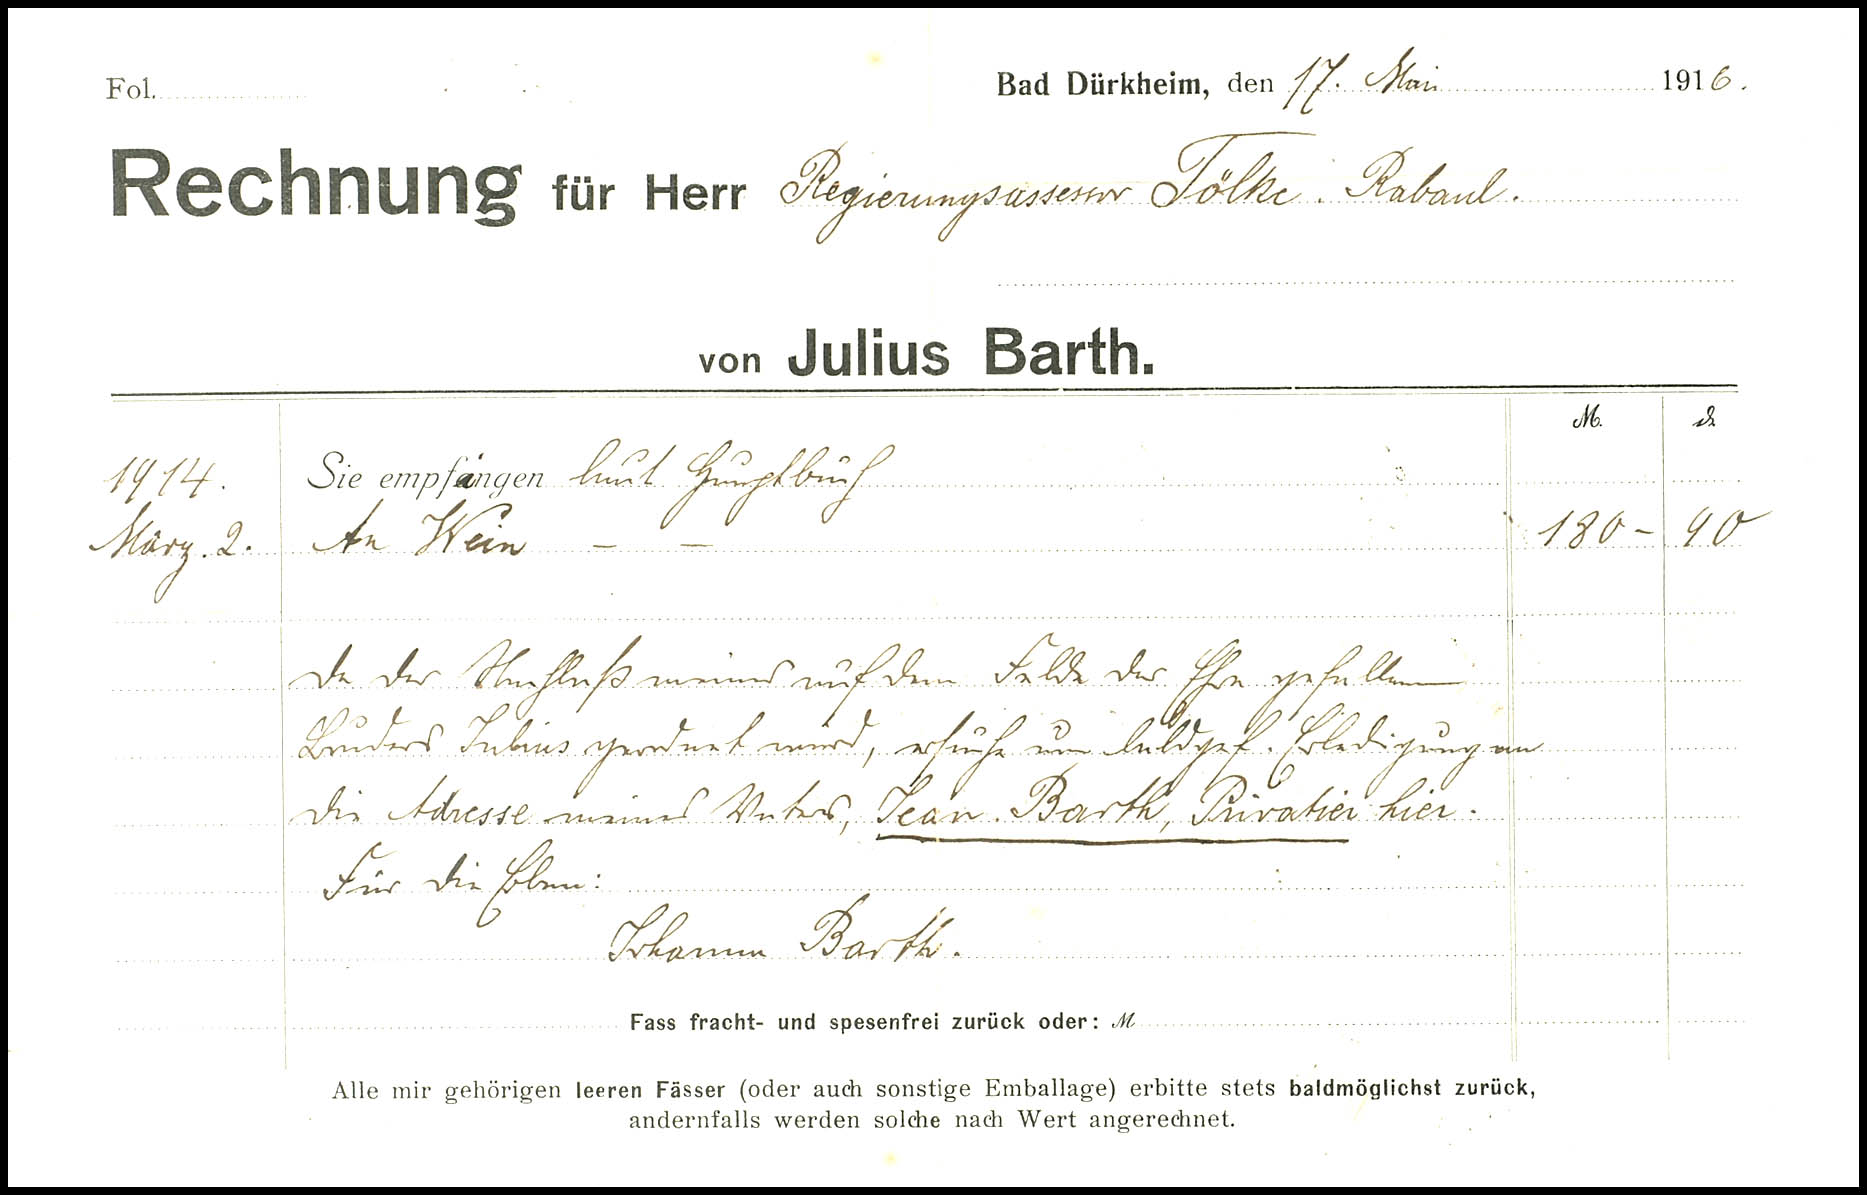 Fol.
Bad Dürkheim, den 17. Mai 1916.
Rechnung für Herr Regierungsassessor Tölke. Rabaul.
von Julius Barth.
M. ₰
1914. Sie empfingen laut Hauptbuch
März. 2. An Wein – – 180 – 90
Da der Nachlaß meines auf dem Felde der Ehre gefallenen
Bruders Julius geordnet wird, ersuche um baldgef. Erledigung an
die Adresse meines Vaters, Jean Barth, Privatier hier.
Für die Erben:
Johanna Barth.
Fass fracht- und spesenfrei zurück oder: M
Alle mir gehörigen leeren Fässer (oder auch sonstige Emballage) erbitte stets baldmöglichst zurück,
andernfalls werden solche nach Wert angerechnet.